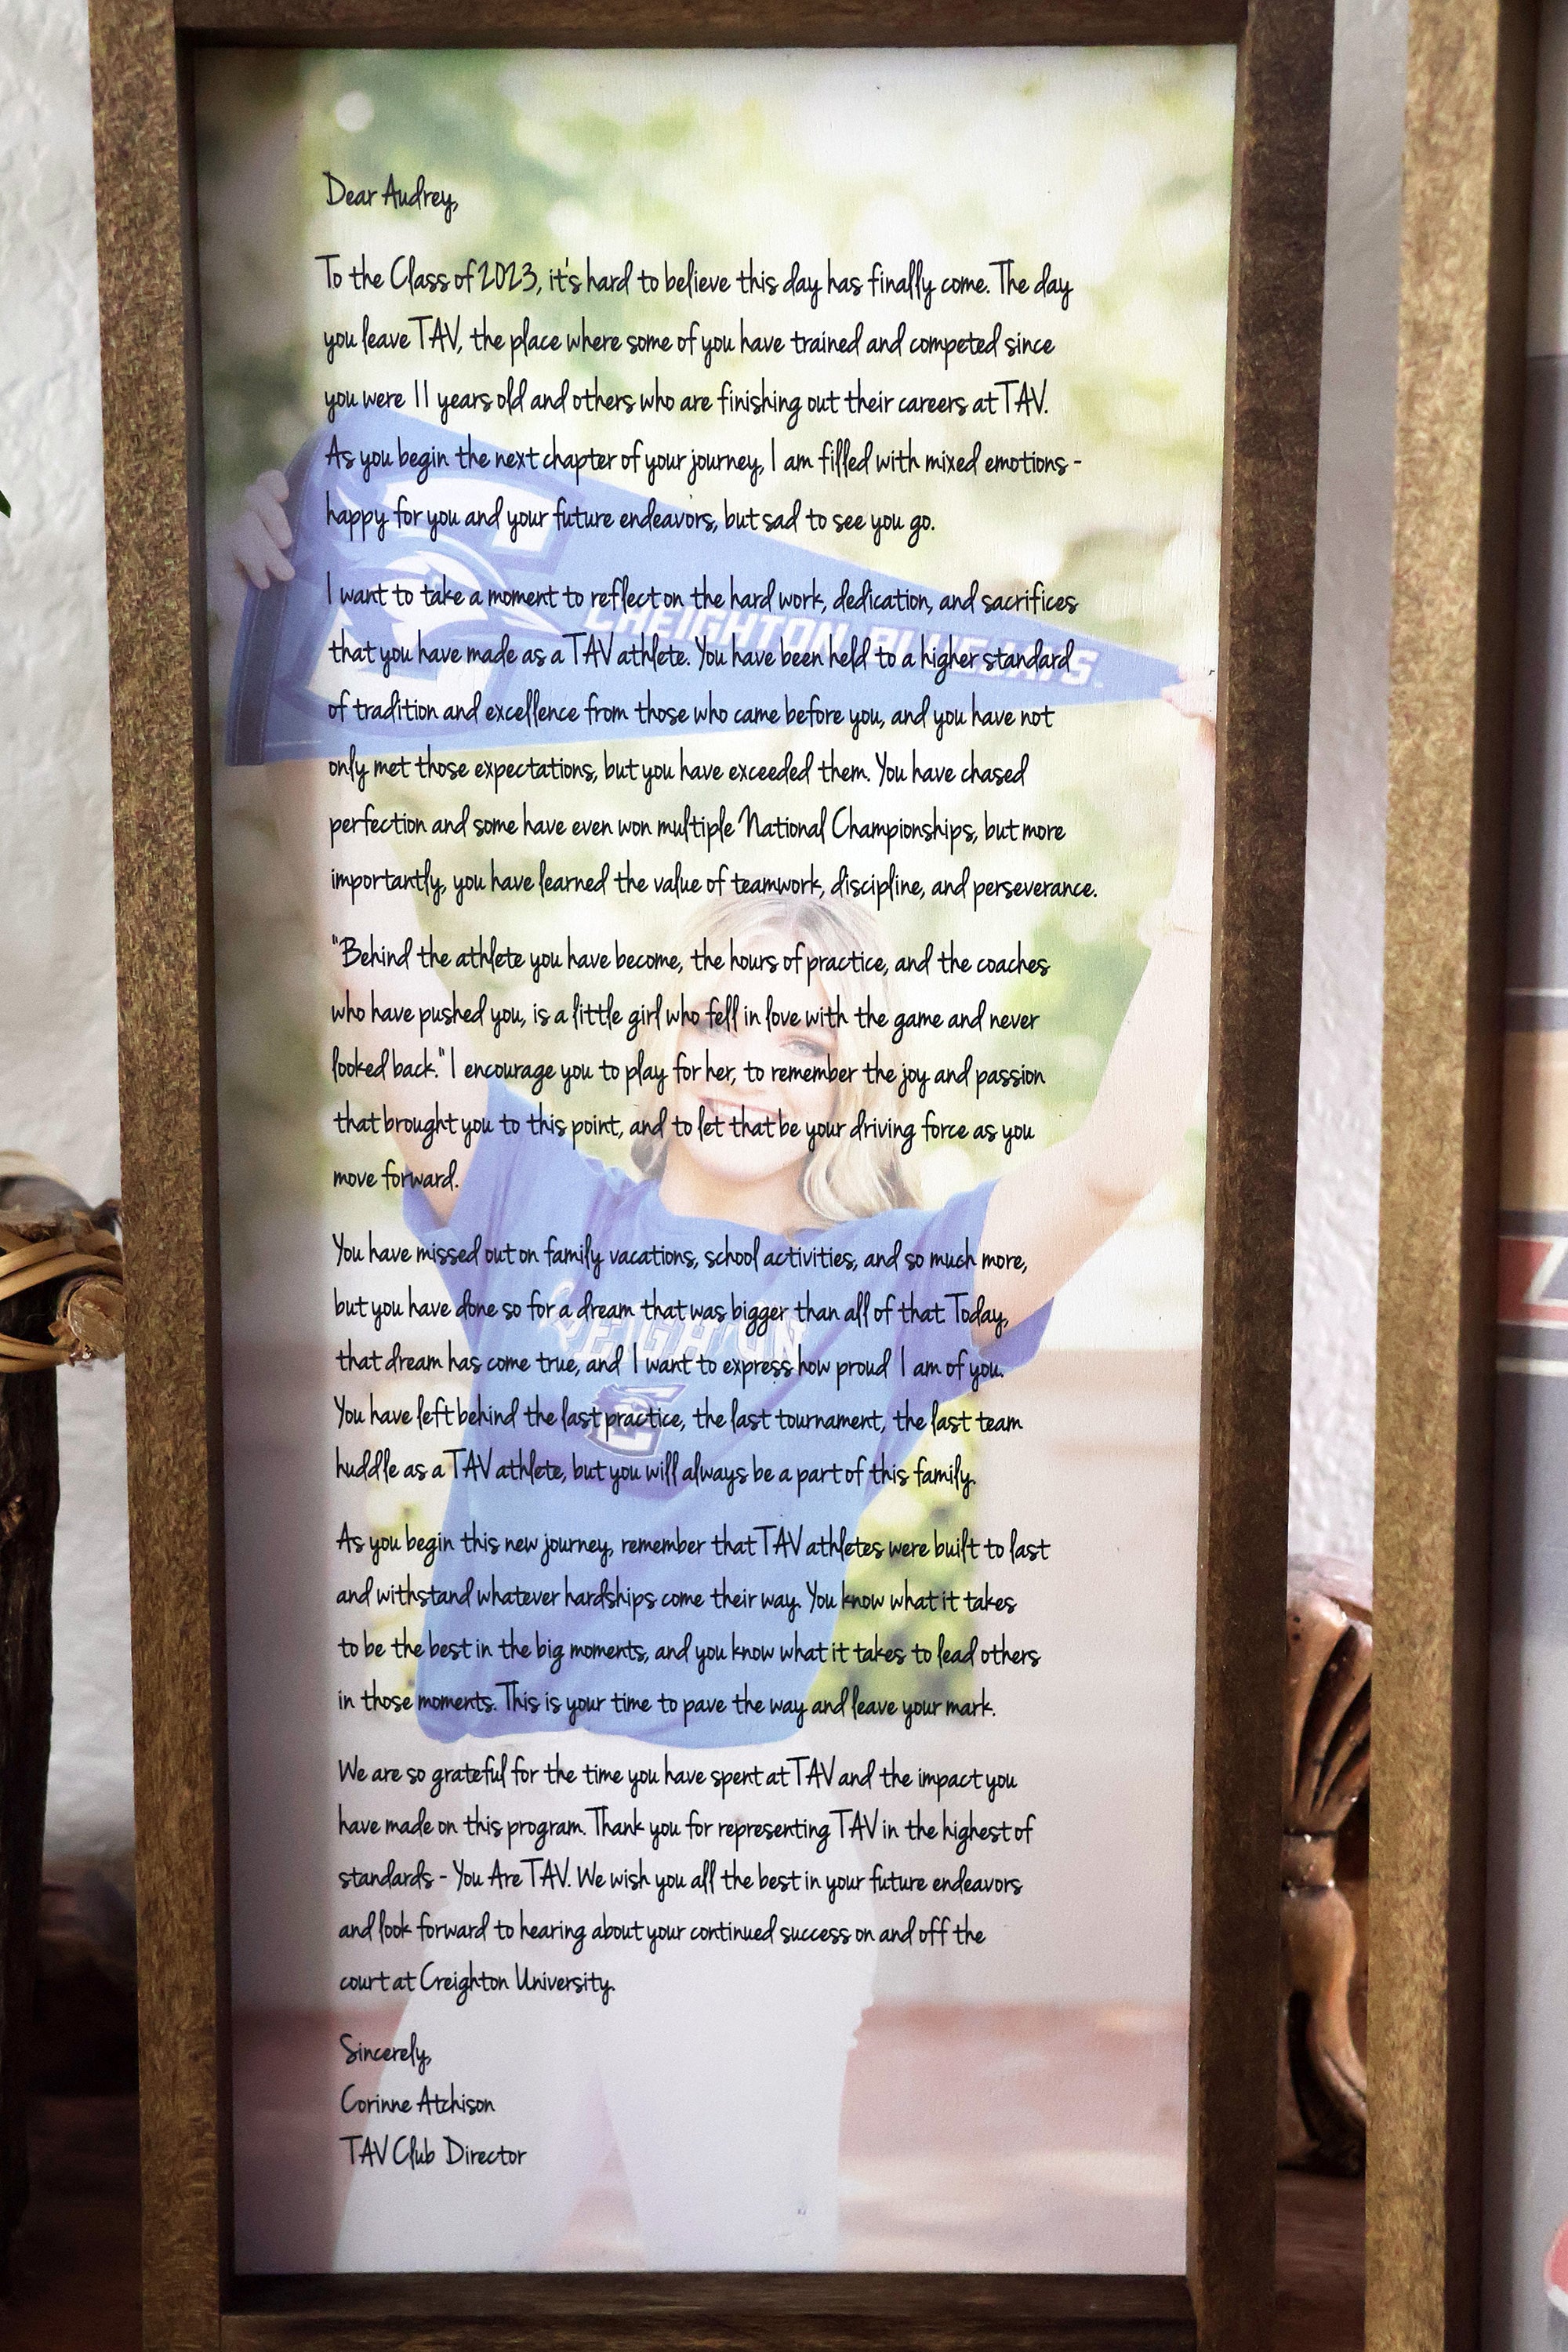 Dear Audrey,
To the Class of 2023, it's hard to believe this day has finally come. The day
you leave TAV, the place where some of you have trained and competed since
you were 11 years old and others who are finishing out their careers at TAV.
As you begin the next chapter of your journey, I am filled with mixed emotions -
happy for you and your future endeavors, but sad to see you go.
I want to take a moment to reflect on the hard work, dedication, and sacrifices
CREIGHTON BLUEJAYS
that you have made as a TAV athlete. You have been held to a higher standard
of tradition and excellence from those who came before you, and you have not
only met those expectations, but you have exceeded them. You have chased
perfection and some have even won multiple National Championships, but more
importantly, you have learned the value of teamwork, discipline, and perseverance.
"Behind the athlete you have become, the hours of practice, and the coaches
who have pushed you, is a little girl who fell in love with the game and never
looked back." I encourage you to play for her, to remember the joy and passion
that brought you to this point, and to let that be your driving force as you
move forward.
You have missed out on family vacations, school activities, and so much more,
but you have done so for a dream that was bigger than all of that. Today,
CREIGHTON
that dream has come true, and I want to express how proud I am of you.
You have left behind the last practice, the last tournament, the last team
huddle as a TAV athlete, but you will always be a part of this family.
As you begin this new journey, remember that TAV athletes were built to last
and withstand whatever hardships come their way. You know what it takes
to be the best in the big moments, and you know what it takes to lead others
in those moments. This is your time to pave the way and leave your mark.
We are so grateful for the time you have spent at TAV and the impact you
have made on this program. Thank you for representing TAV in the highest of
standards - You Are TAV. We wish you all the best in your future endeavors
and look forward to hearing about your continued success on and off the
court at Creighton University.
Sincerely,
Corinne Atchison
TAV Club Director